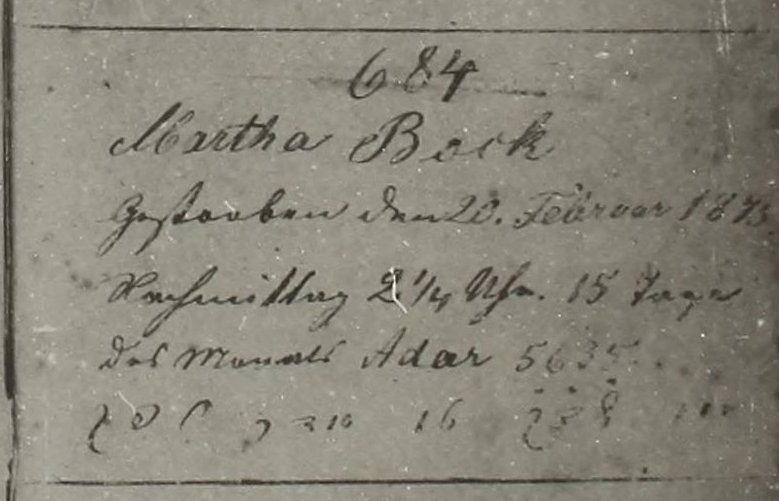 684
Martha Bock
Gestorben den 20. Februar 1875.
Nachmittag 2 1/4 Uhr. 15 Tage
des Monats Adar 5635.
16